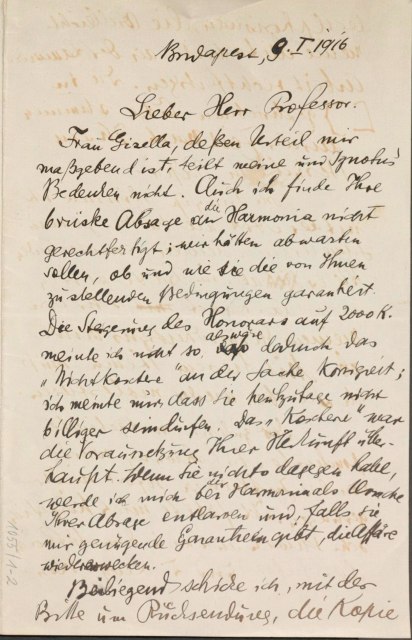 Budapest, 9. I. 1916
Lieber Herr Professor.
Frau Gisella, deßen Urteil mir
maßgebend ist, teilt meine und Ignotus'
Bedenken nicht. Auch ich finde Ihre
brüske Absage an die Harmonia nicht
gerechtfertigt; wir hätten abwarten
sollen, ob und wie sie die von Ihnen
zu stellenden Bedingungen garantiert.
Die Steigerung des Honorars auf 2000 K.
meinte ich nicht so, als wäre dadurch das
„Nichtkoschere“ an der Sache korrigiert;
ich meinte nur, dass Sie heutzutage nicht
billiger sein dürfen. Das „Koschere“ war
die Voraussetzung Ihrer Hierkunft über-
haupt. Wenn Sie nichts dagegen habe,
werde ich mich bei der Harmonia als Ursache
Ihrer Absage entlarven und, falls sie
mir genügende Garantien gibt, die Affäre
wiedererwecken.
Beiliegend schicke ich, mit der
Bitte um Rücksendung, die Kopie
1055/1-2